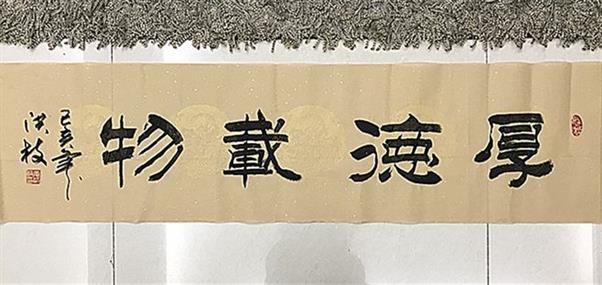 厚德載物
己亥年
洪枝